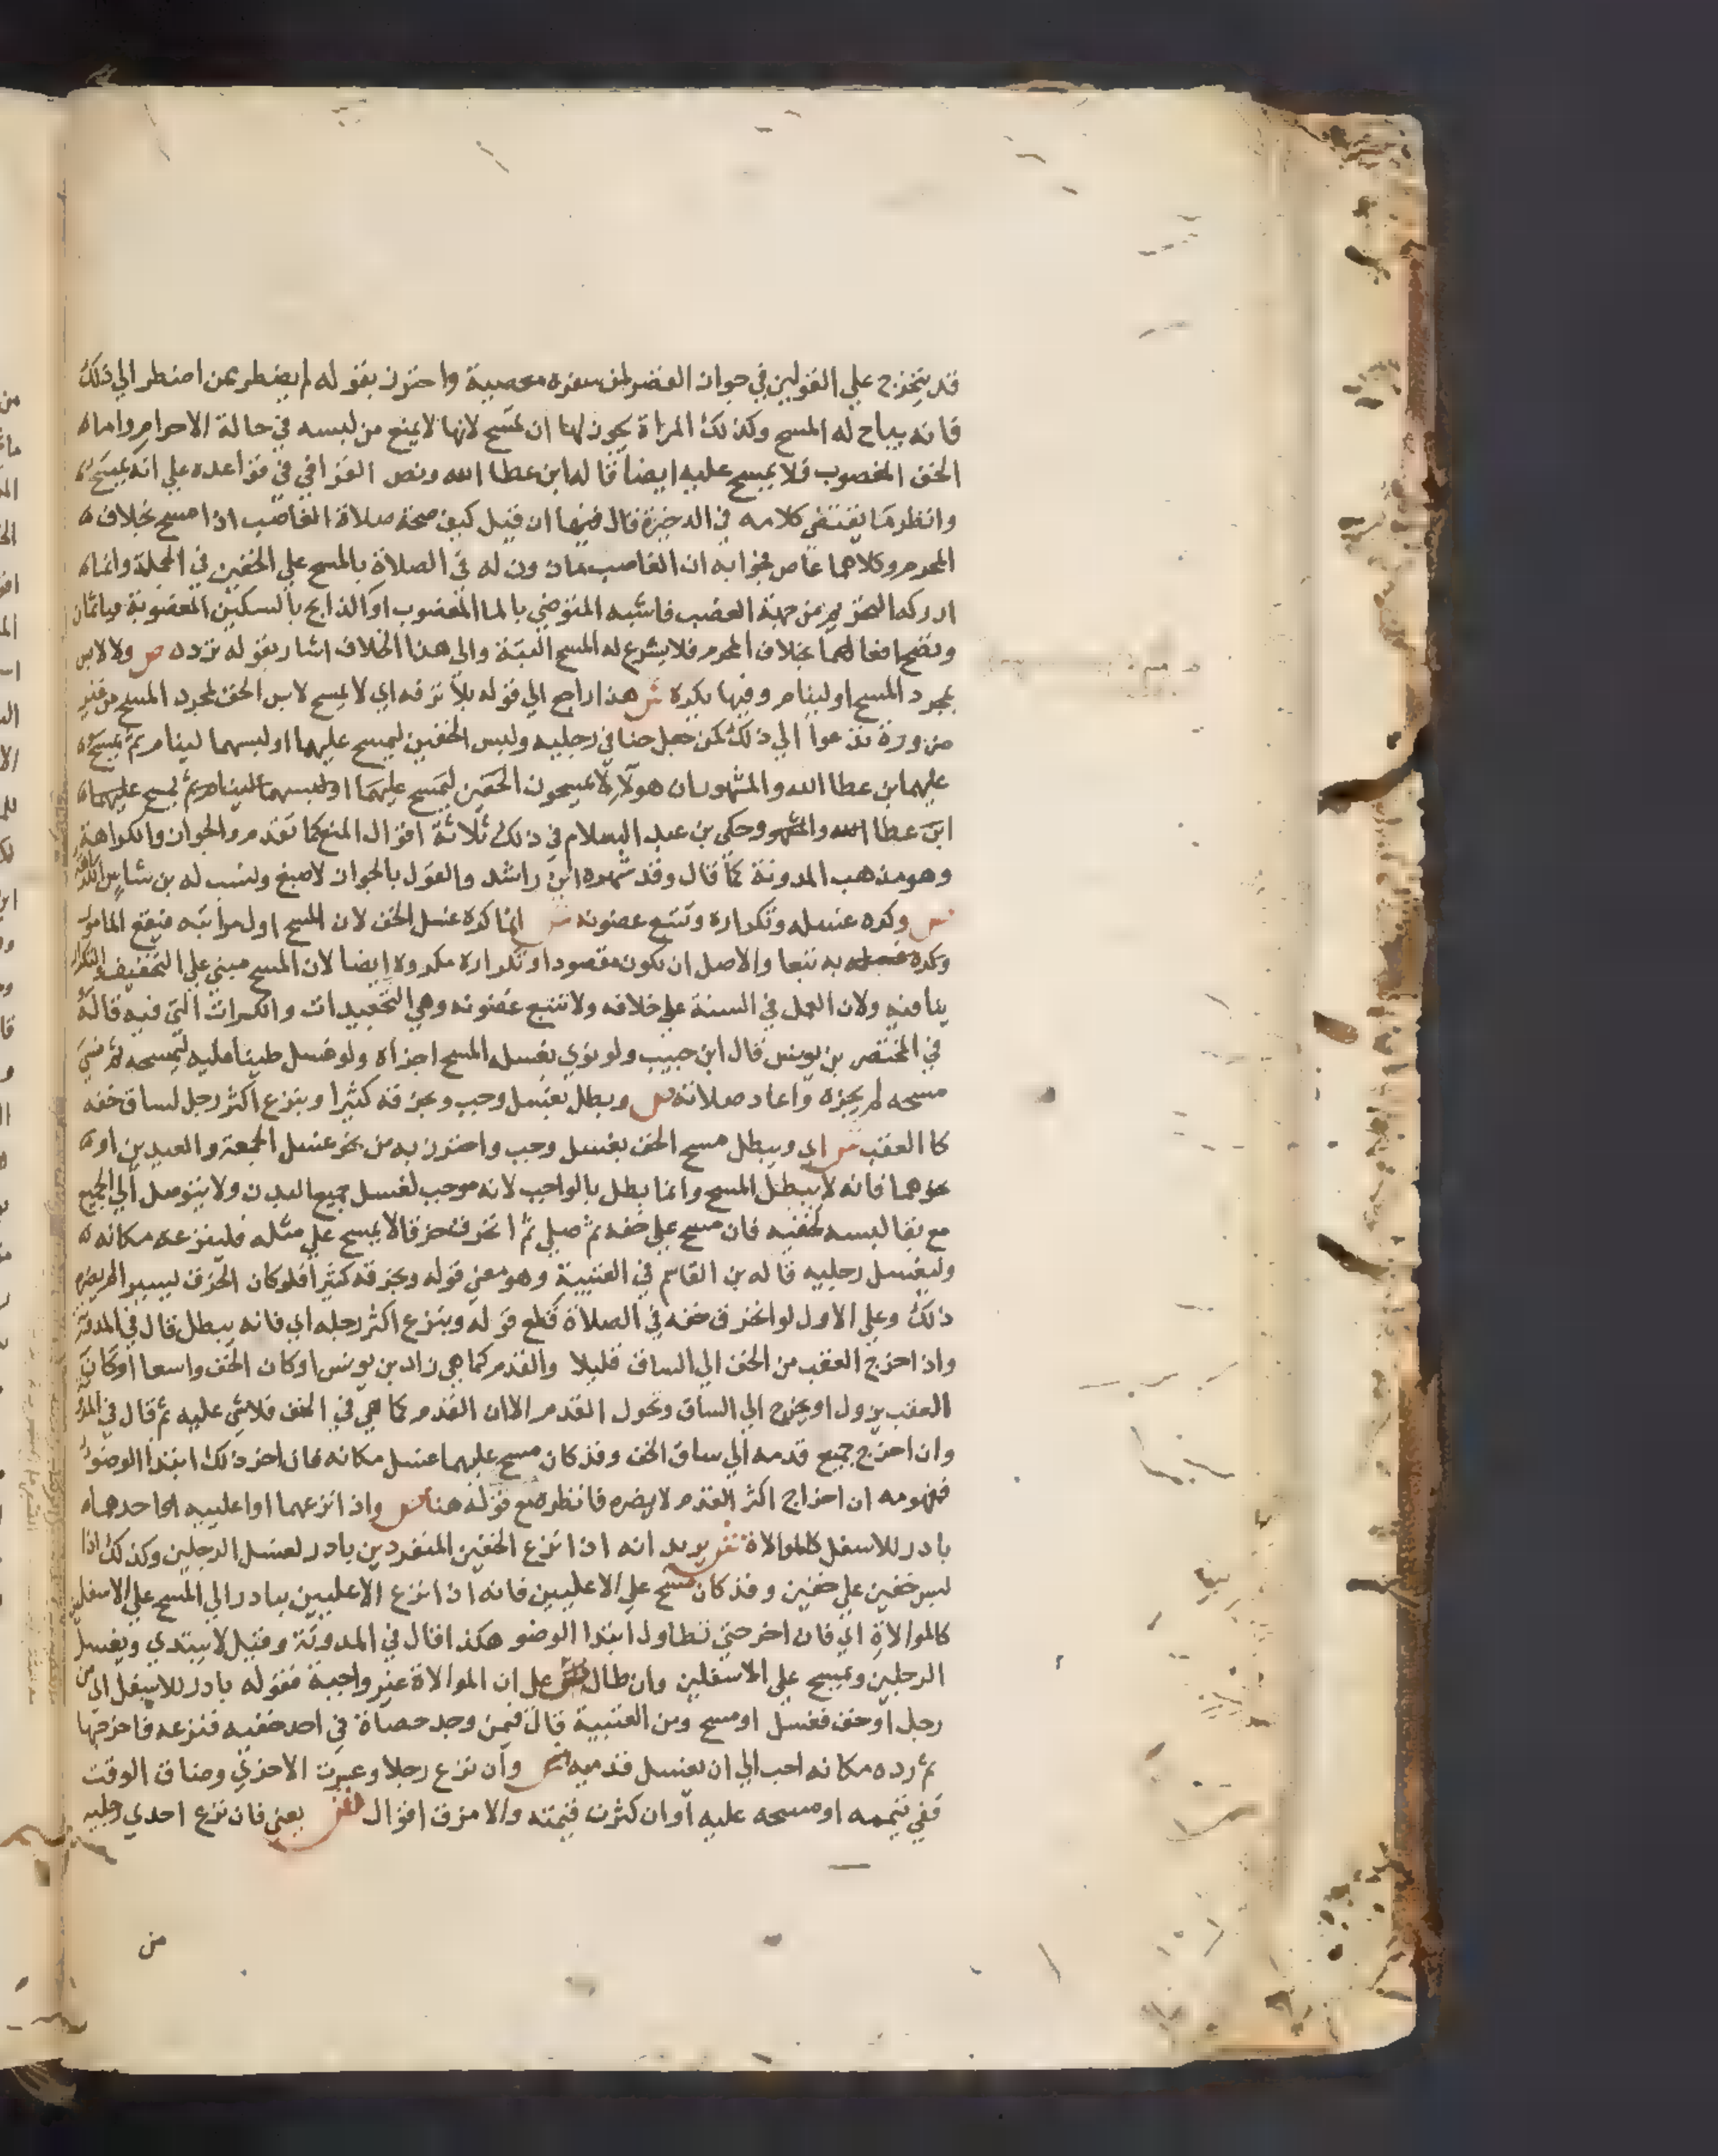 قد يتخرج علي القولين في جواز القصر لمن سفره معصية واحترز بقوله لم يضطر عمن اضطر الي ذلك
فانه يباح له المسح وكذلك المراة يجوز لها ان تمسح لانها لا تمنع من لبسه في حالة الاحرام واما
الخف المغصوب فلا يمسح عليه ايضا قاله ابن عطا الله ونص القرافي في قواعده علي انه يمسح
وانظر ما يقتضي كلامه في الدخيرة قال فيها ان قيل كيف صحة صلاة الغاصب اذا مسح بخلاف
المحرم وكلاهما عاص فجوابه ان الغاصب ماذون له في الصلاة بالمسح علي الخفين في الجملة وانما
ادركه التحريم من جهة الغصب فاشبه المتوضي بالما المغصوب او الذابح بالسكين المغصوبة فياثمان
وتصح افعالهما بخلاف المحرم فلا يشرع له المسح البتة والى هذا الخلاف اشار بقوله تردد ص ولا لابس
بمجرد المسح او لينام وفيها يكره ش هذا راجع الي قوله بلا ترفه اي لا يمسح لابس الخف لمجرد المسح من غير
ضرورة تدعوا الي ذلك كمن جعل حنا في رجليه ولبس الخفين ليمسح عليهما او لبسهما لينام ثم يمسح
عليهما بن عطا الله والمشهور ان هولا لا يمسحون الخفين ليمسح عليهما او لبسهما لينام ثم يمسح عليهما
ابن عطا الله والمشهور وحكي بن عبد السلام في ذلك ثلاثة اقوال المنع كما تقدم والجواز والكراهة
وهو مذهب المدونة كما قال وقد شهره ابن راشد والقول بالجواز لاصبغ ونسب له بن شاس الكراهة
ص وكره غسله وتكراره وتتبع غضونه ش انما كره غسل الخف لان المسح اول مراتبه فيقع المامور
وكره به تبعا والاصل ان يكون مقصودا وتكراره مكروه ايضا لان المسح مبني علي التخفيف والتكرار
ينافيه ولان العمل في السنة علي خلافه ولا تتبع غضونه وهي التجعيدات والكسرات التي فيه قاله
في المختصر بن يونس قال ابن حبيب ولو نوي بغسله المسح اجزاه ولو غسل طينا عليه ليمسحه ثم نسي
مسحه لم يجزه واعاد صلاته ص وبطل بغسل وجب وبخرقه كثيرا وبنزع اكثر رجل لساق خفه
كا العقب ش اي ويبطل مسح الخف بغسل وجب واحترز به من نحو غسل الجمعة والعيدين او
نحوهما فانه لا يبطل المسح وانما بطل بالواجب لانه موجب لغسل جميع البدن ولا يتوصل الي الجميع
مع بقا لبسه لخفيه فان مسح علي خفه ثم صلي ثم انخرق خرقا لا يمسح علي مثله فلينزعه مكانه
وليغسل رجليه قاله بن القاسم في العتبية وهو معني قوله وبخرقه كثيرا فلو كان الخرق ليسير لم يضره
ذلك وعلي الاول لو انخرق خفه في الصلاة قطع قوله وبنزع اكثر رجله اي فانه يبطل قال في المدونة
واذا خرج العقب من الخف الي الساق قليلا والقدم كما هي زاد بن يونس او كان الخف واسعا او كان
العقب يزول او يخرج الي الساق وتجول القدم الا ان القدم كما هي في الخف فلا شي عليه ثم قال في المدونة
وان اخرج جميع قدمه الي ساق الخف وقد كان مسح عليهما غسل مكانه فان اخر ذلك ابتدا الوضو
فمفهومه ان اخراج اكثر القدم لا يضره فانظره مع قوله هنا ص واذا نزعهما او اعلييه او احدهما
بادر للاسفل كالموالاة ش يريد انه اذا نزع الخفين المنفردين بادر لغسل الرجلين وكذلك اذا
لبس خفين علي خفين وقد كان مسح علي الاعليين فانه اذا نزع الاعليين يبادر الي المسح علي الاسفلين
كالموالاة اي فان اخر حتي تطاول ابتدا الوضو هكذا قال في المدونة وقيل لا يبتدي ويغسل
الرجلين ويمسح علي الاسفلين وان طال علي ان الموالاة غير واجبة فقوله بادر للاسفل اي من
رجل او خف فغسل او مسح ومن العتبية قال فيمن وجد حصاة في احد خفيه فنزعه فاخرجها
ثم رده مكانه احب الي ان يغسل قدميه ص وان نزع رجلا وعسرت الاخري وضاق الوقت
ففي تيممه او مسحه عليه او ان كثرت قيمته والا مزق اقوال ش يعني فان نزع احدي رجليه
من